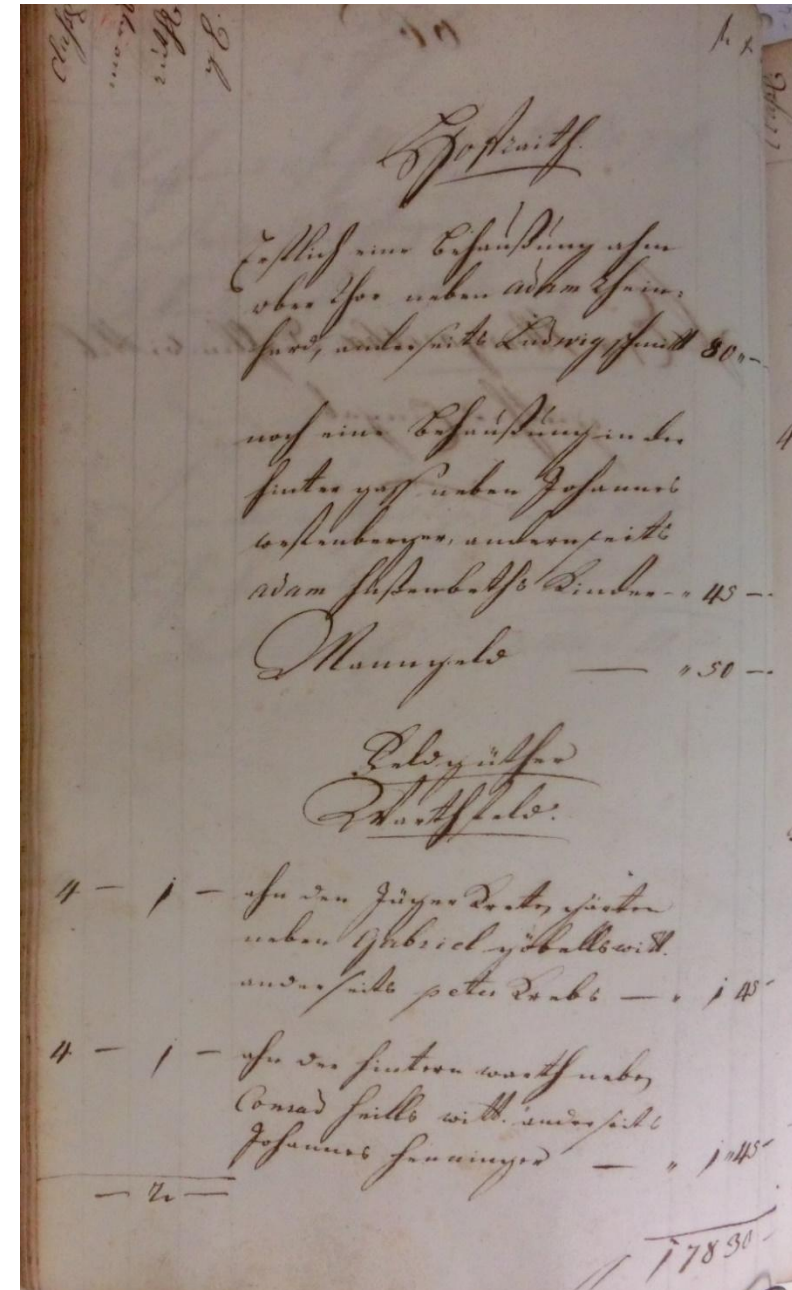 Hoffraith.
Erstlich eine Behaußung ahm
ober Thor neben adam Rhein=
hard, anderseits Ludwig schmitt 80 „ —
noch eine Behaußung in der
hinter gass neben Johannes
westenberger, andernseits
adam haßenbeths Kinder - „ 45 —
Manngeld — „ 50 —
Feldgüther
Warthfeld.
4 — 1 — ahn den gärten
neben Gabriel göbells witt.
anderseits peter Krebs — „ 1 45
4 — 1 — ahn der hintern warth neben
Conrad heills witt. anderseits
Johannes henninger — „ 1 „ 45
— 2 —
178 30